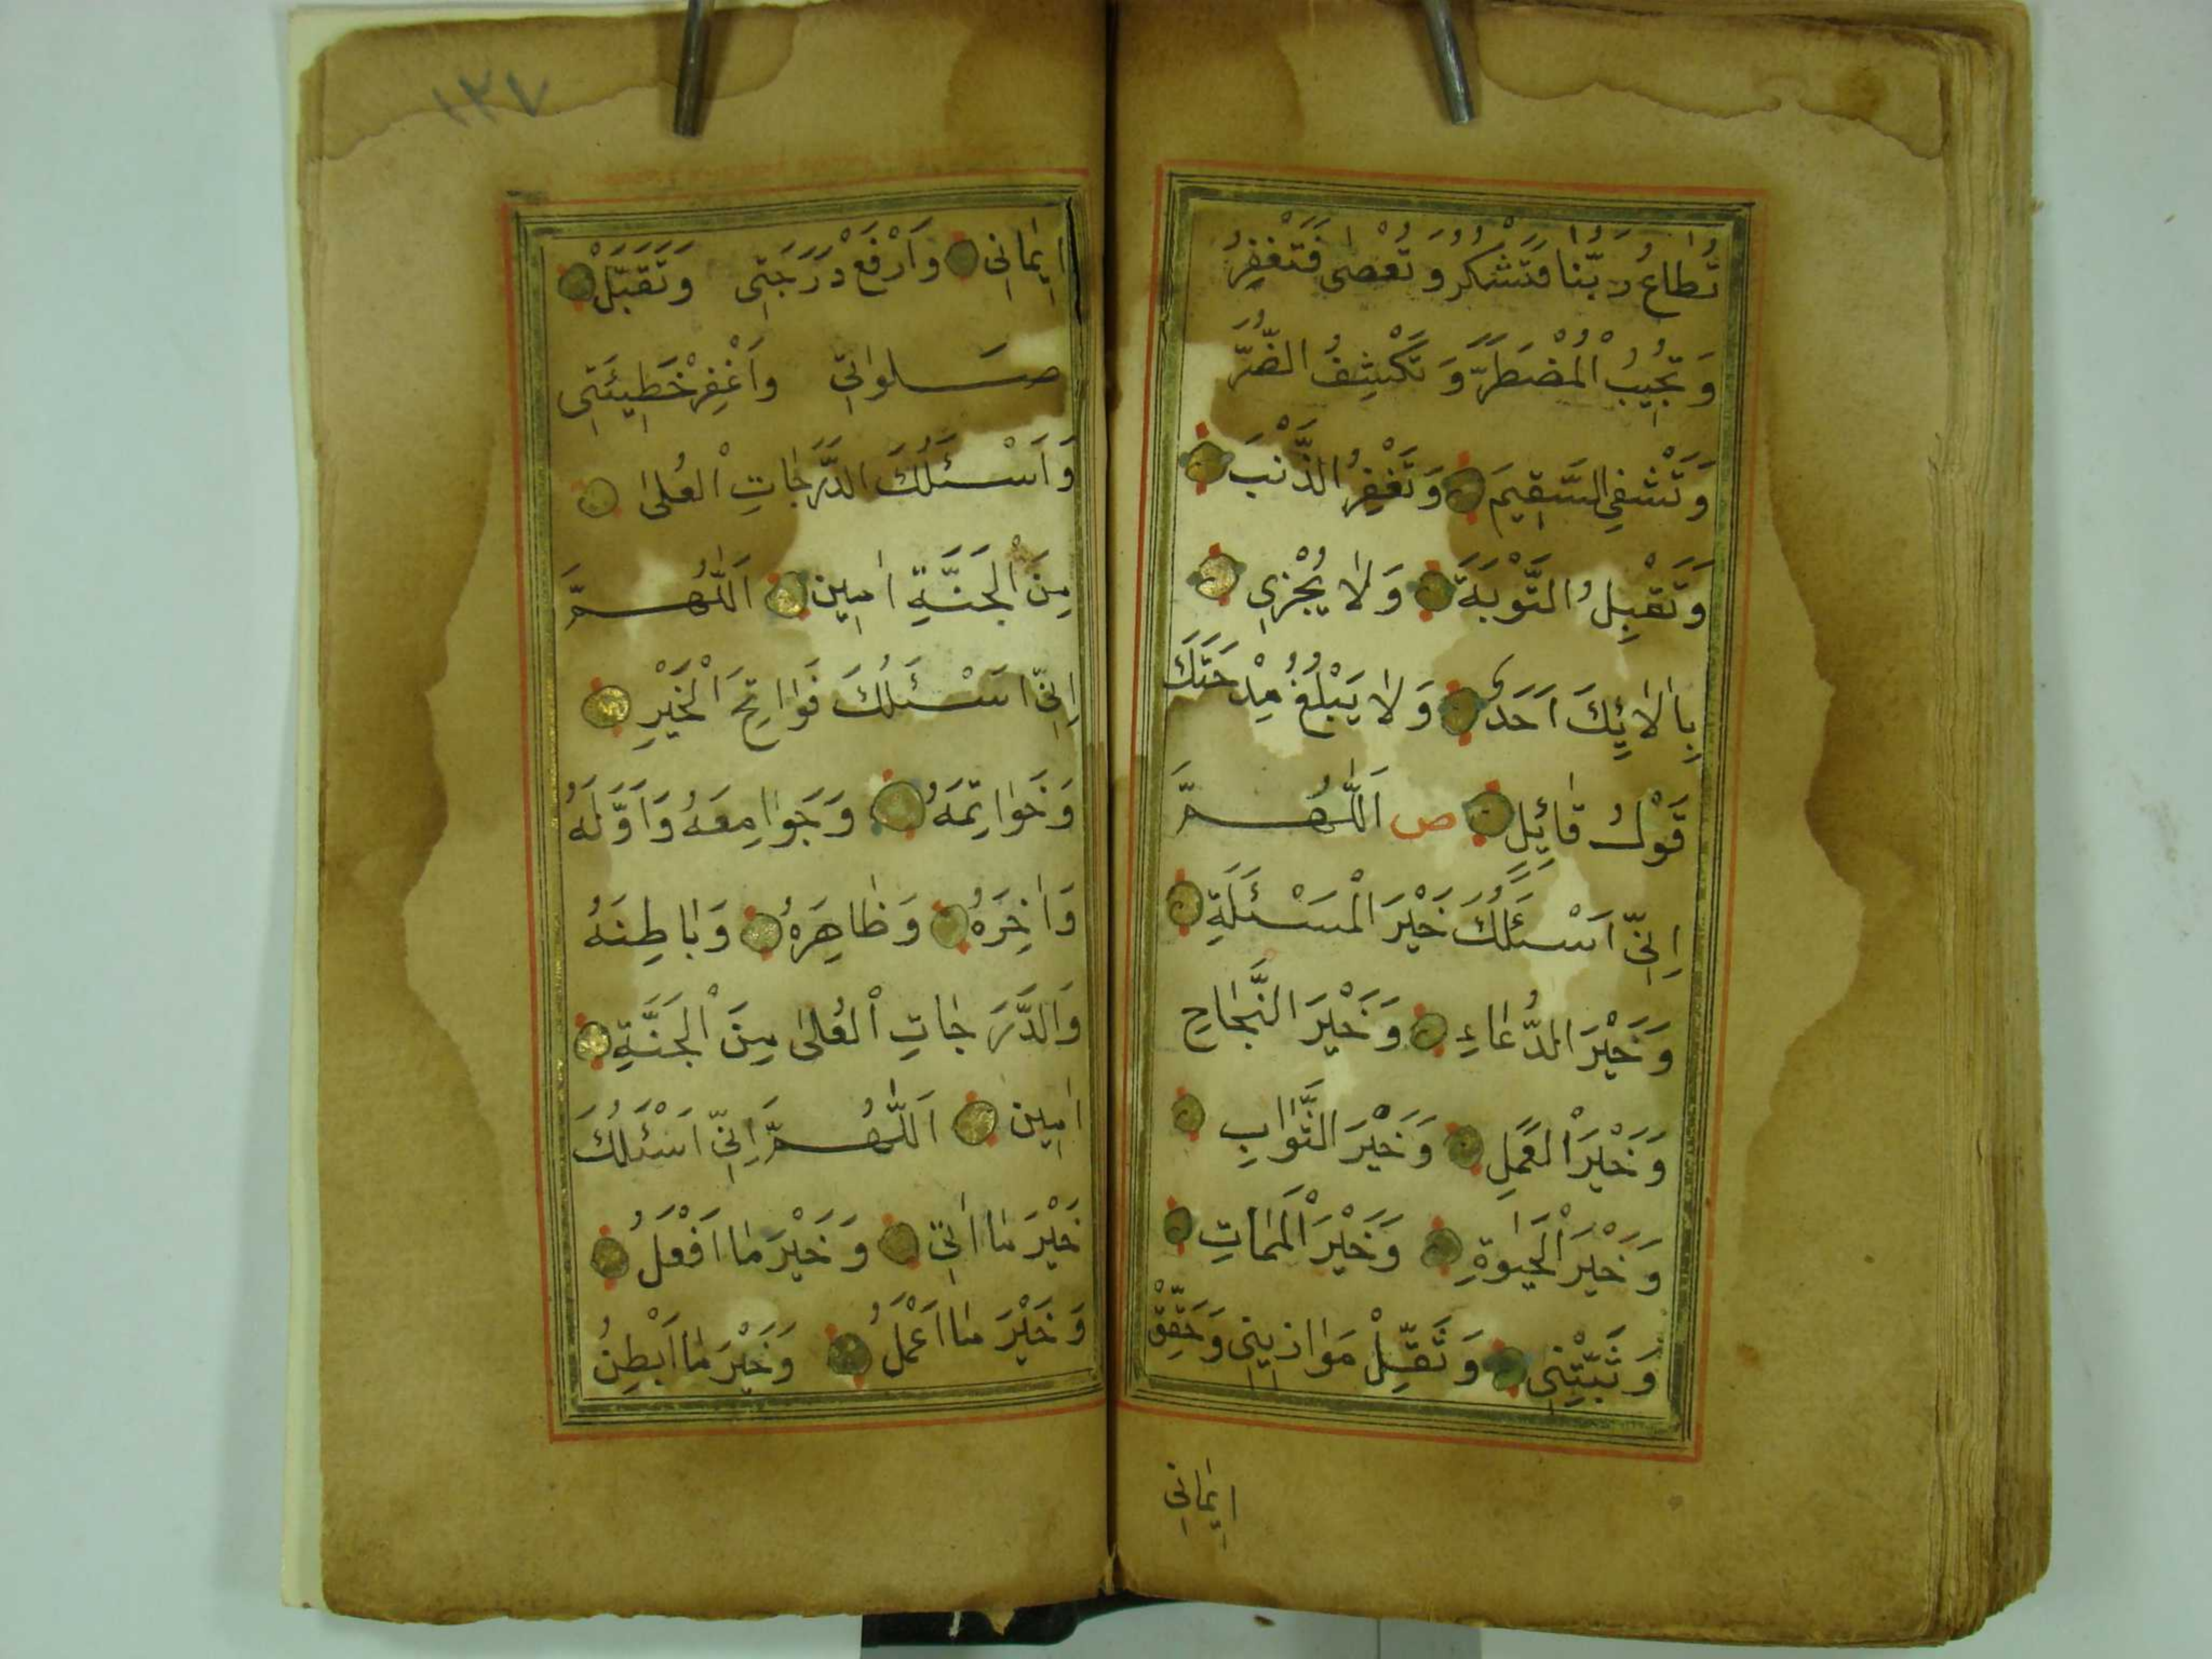 تُطَاعُ رَبَّنَا فَتَشْكُرُ وَتُعْصٰى فَتَغْفِرُ
وَتُجِيبُ الْمُضْطَرَّ وَتَكْشِفُ الضُّرَّ
وَتَشْفِي السَّقِيمَ وَتَغْفِرُ الذَّنْبَ
وَتَقْبِلُ التَّوْبَةَ وَلَا يُجْزِي
بِاٰلَائِكَ اَحَدٌ وَلَا يَبْلُغُ مِدْحَتَكَ
قَوْلُ قَائِلٍ ص اَللّٰهُمَّ
اِنِّي اَسْئَلُكَ خَيْرَ الْمَسْئَلَةِ
وَخَيْرَ الدُّعَاءِ وَخَيْرَ النَّجَاحِ
وَخَيْرَ الْعَمَلِ وَخَيْرَ الثَّوَابِ
وَخَيْرَ الْحَيٰوةِ وَخَيْرَ الْمَمَاتِ
وَثَبِّتْنِي وَثَقِّلْ مَوَازِينِي وَحَقِّقْ
اِيمَانِي
١٢٧
اِيمَانِي وَارْفَعْ دَرَجَتِي وَتَقَبَّلْ
صَلَوَاتِي وَاغْفِرْ خَطِيئَتِي
وَاَسْئَلُكَ الدَّرَجَاتِ الْعُلٰى
مِنَ الْجَنَّةِ اٰمِين اَللّٰهُمَّ
اِنِّي اَسْئَلُكَ فَوَاتِحَ الْخَيْرِ
وَخَوَاتِمَهُ وَجَوَامِعَهُ وَاَوَّلَهُ
وَاٰخِرَهُ وَظَاهِرَهُ وَبَاطِنَهُ
وَالدَّرَجَاتِ الْعُلٰى مِنَ الْجَنَّةِ
اٰمِين اَللّٰهُمَّ اِنِّي اَسْئَلُكَ
خَيْرَ مَا اٰتِي وَخَيْرَ مَا اَفْعَلُ
وَخَيْرَ مَا اَعْمَلُ وَخَيْرَ مَا اَبْطِنُ